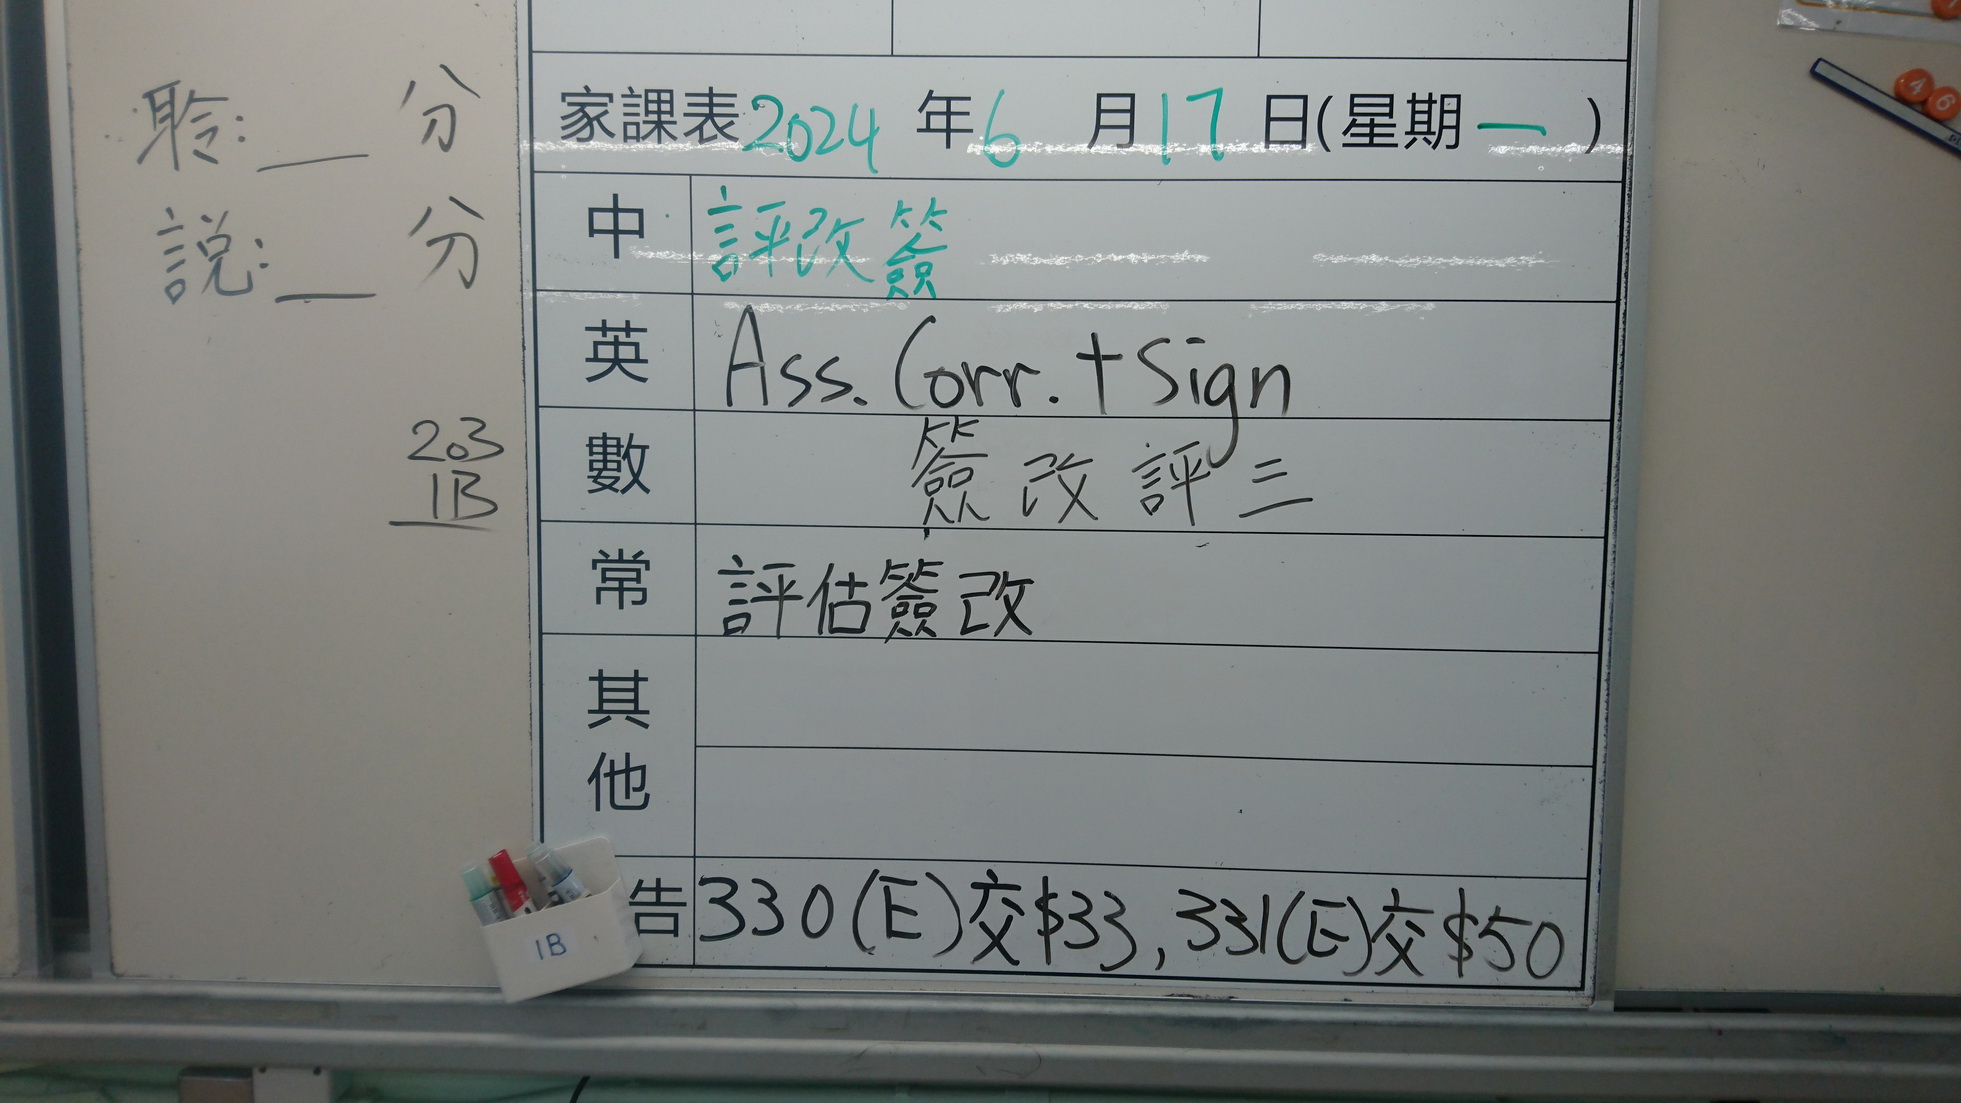 聆:__分
説:__分
203
1B
家課表2024年6月17日(星期一)
中 評改簽
英 Ass. Corr. + Sign
數 簽改評三
常 評估簽改
其他
告 330(E)交$33, 331(E)交$50
1B
4
6